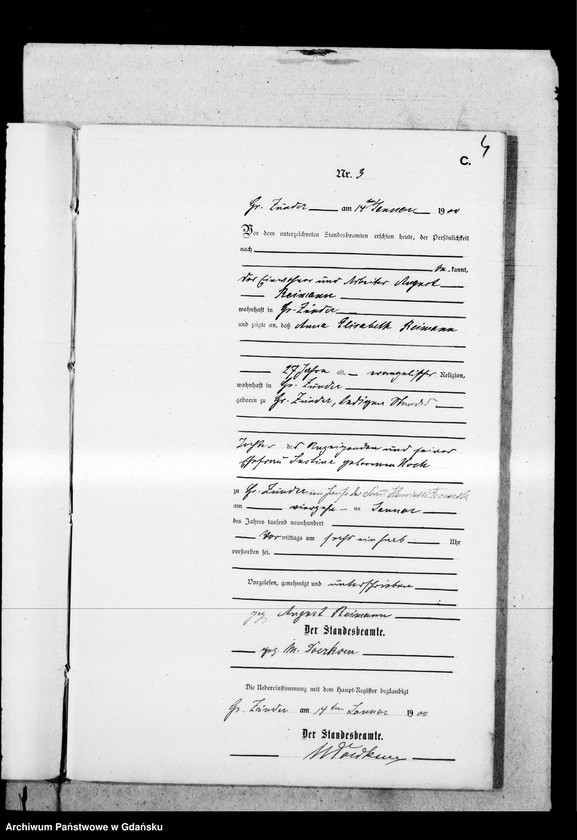 C.
Nr. 3
Gr. Zünder am 14ten Januar 1900
Vor dem unterzeichneten Standesbeamten erschien heute, der Persönlichkeit
nach
be kannt,
der Einwohner und Arbeiter August
Reimann
wohnhaft in Gr. Zünder
und zeigte an, daß Anna Elisabeth Reimann
27 Jahre alt, evangelischer Religion,
wohnhaft in Gr. Zünder
geboren zu Gr. Zünder, ledigen Standes
Tochter des Anzeigenden und seiner
Ehefrau Justine geborenen Koch
zu Gr. Zünder im Hause der Henriette
am vierzehn ten Januar
des Jahres tausend neunhundert
Vormittags um sechs einhalb Uhr
verstorben sei.
Vorgelesen, genehmigt und unterschrieben
gez. August Reimann
Der Standesbeamte.
gez. M.
Die Uebereinstimmung mit dem Haupt-Register beglaubigt
Gr. Zünder am 14ten Januar 1900
Der Standesbeamte.
Archiwum Państwowe w Gdańsku